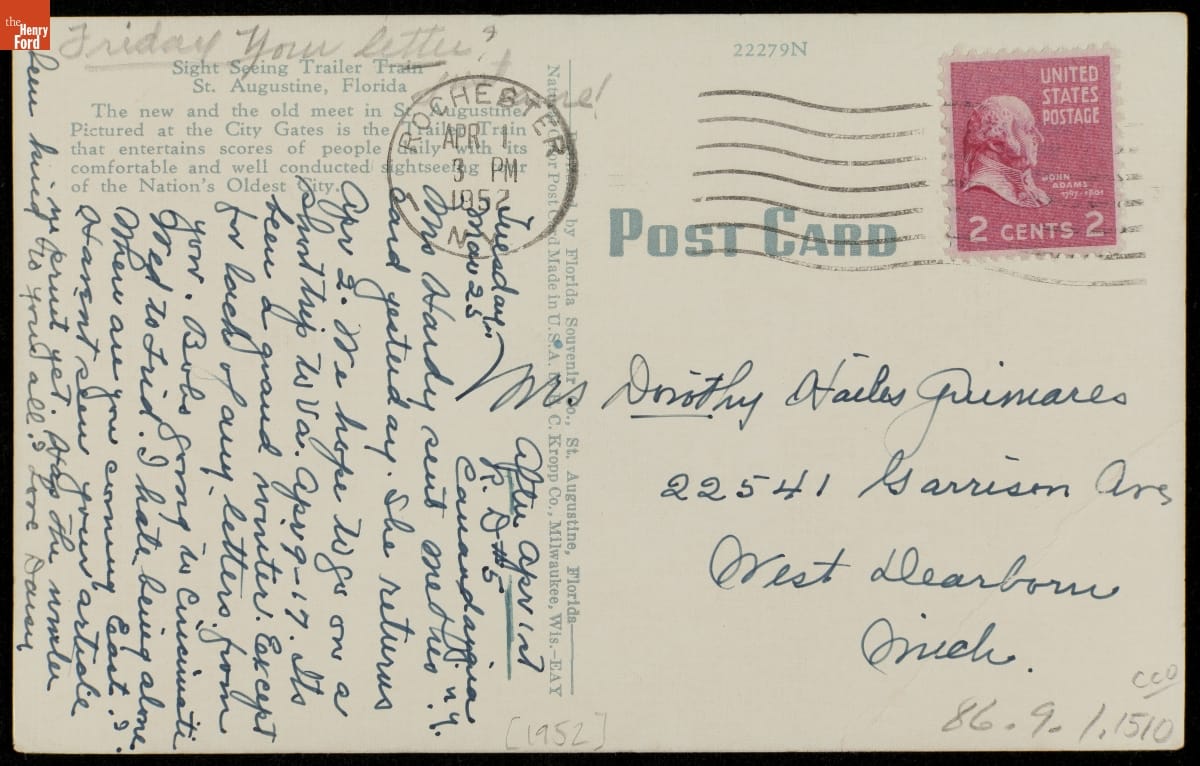 the
Henry
Ford
Friday Your letter
Sight Seeing Trailer Train
St. Augustine, Florida
The new and the old meet in St. Augustine.
Pictured at the City Gates is the Trailer Train
that entertains scores of people daily with its
comfortable and well conducted sightseeing tour
of the Nation's Oldest City.
22279N
ROCHESTER
APR 1
3 PM
1952
N.Y.
UNITED
STATES
POSTAGE
JOHN
ADAMS
1797-1801
2 CENTS 2
POST CARD
Published by Florida Souvenir Co., St. Augustine, Florida
Natural Color Post Card Made in U.S.A. by E. C. Kropp Co., Milwaukee, Wis.—EAY
Tuesday
Mar 25
After Apr 1st
R. D #5
Canandaigua
N.Y.
Mrs Hardy sent me this
card yesterday. She returns
Apr 2. We hope to go on a
short trip to Va. Apr 9-17. Its
been a grand winter! Except
for lack of any letters from
you. Bobs going to Cincinnati
Wed to Frid. I hate being alone.
When are you coming East?
Havent seen your article
in print yet. Has the winter
been kind to you all? Love Dansy
Mrs Dorothy Hailes Guimares
22541 Garrison Ave
West Dearborn
Mich.
[1952]
cco
86.9.1.1510